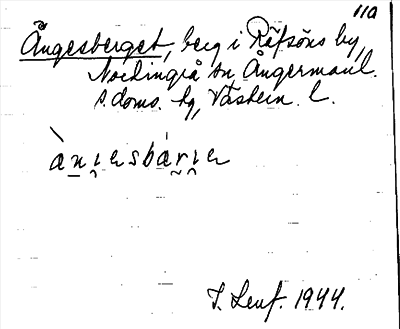 11a
Ängesberget, berg i Räfsöns by,
Nordingrå sn, Ångermanl.
s. doms. hg, Västern. l.
J. Lenf. 1944.